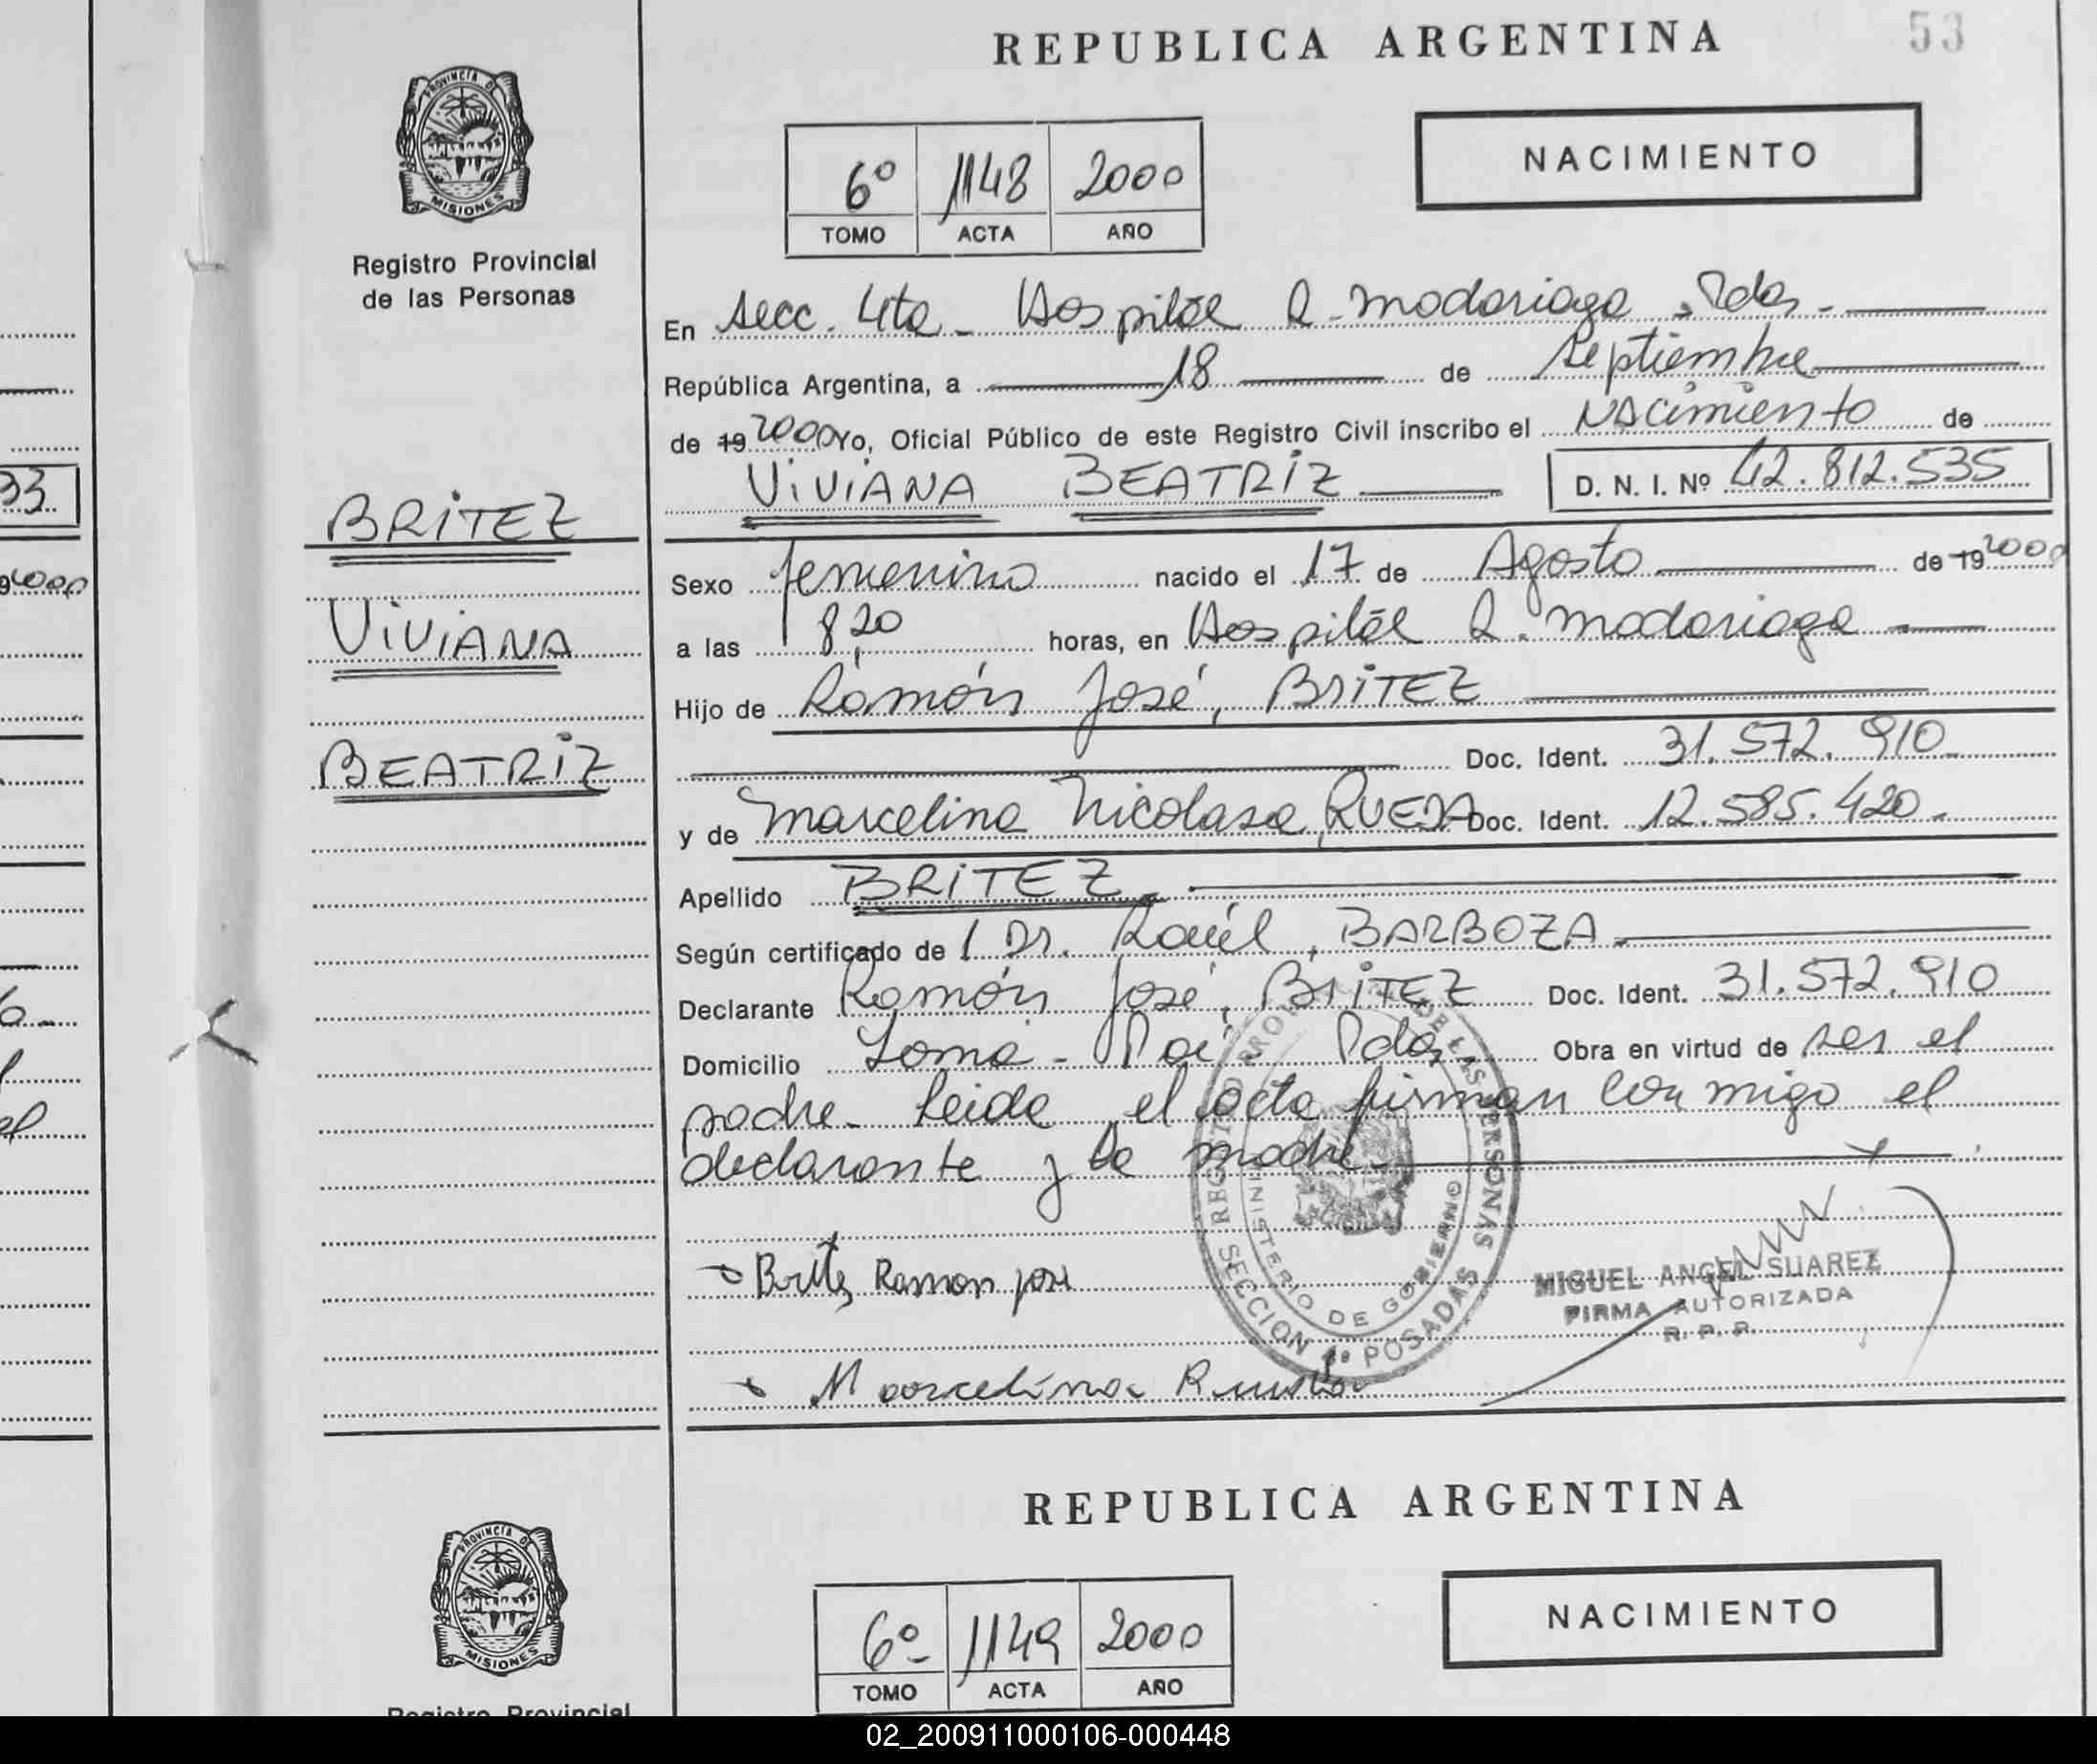 REPUBLICA ARGENTINA
53
PROVINCIA DE
MISIONES
Registro Provincial
de las Personas
6º 1148 2000
TOMO ACTA AÑO
NACIMIENTO
En Secc. 4ta - Hospital R. Madariaga, Pdas. -
República Argentina, a 18 de Septiembre
de 19 2000 Yo, Oficial Público de este Registro Civil inscribo el Nacimiento de
VIVIANA BEATRIZ D. N. I. Nº 42.812.535
33
BRITEZ
Sexo femenino nacido el 17 de Agosto de 19 2000
VIVIANA
a las 8,20 horas, en Hospital R. Madariaga
Hijo de Ramón José, BRITEZ
BEATRIZ
Doc. Ident. 31.572.910
y de Marcelina Nicolasa, RUEDA Doc. Ident. 12.585.420.
Apellido BRITEZ
Según certificado de l Dr. Raúl, BARBOZA
Declarante Ramón José, BRITEZ Doc. Ident. 31.572.910
Domicilio Loma - Poi Pdas Obra en virtud de ser el
padre. Leida el acta firman conmigo el
declarante y la madre.
REGISTRO PRO DE LAS PERSONAS
MINISTERIO DE GOBIERNO
SECCION 4ª POSADAS
Britez Ramon jose
MIGUEL ANGEL SUAREZ
FIRMA AUTORIZADA
R. P. P.
Marcelina Rueda
REPUBLICA ARGENTINA
PROVINCIA DE
MISIONES
6º 1149 2000
TOMO ACTA AÑO
NACIMIENTO
Registro Provincial
02_200911000106-000448